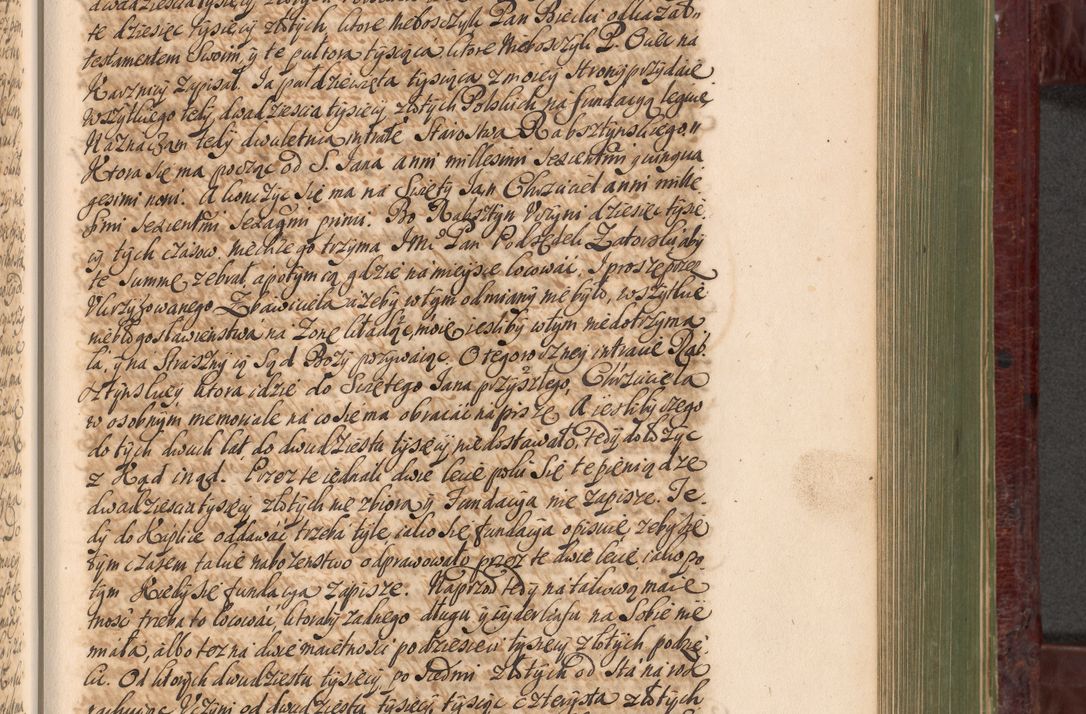 te dziesięc tysięcy złotych, ktore nieboszczyk Pan Biecki odkazał
testamentem Swoim, y te pułtora tysiąca, ktore Nieboszczyk P. na
Karznicy Zapisał. Ia puł dziewięta tysiąca z moiey strony przydaię.
Wszytkiego tedy dwadziescia tysięcy złotych Polskich na fundacyą leguię
Naznaczam tedy dwuletnią intratę Starostwa Rabsztynskiego,
Ktora się ma począc od S. Jana anni millesimi sexcentmi quinqua
gesimi noni. A konczyc się ma na Swięty Jan Chrzciciel anni mille
simi sexcentmi sexagmi primi. Bo Rabsztyn Uczyni dziesięc tysię
cy tych czasow, niechze go trzyma Jmc Pan Podsędek Zatorski, aby
te summę zebrał, a potym ią gdzie na mieysce locować, I proszę przez
Ukrzyzowanego Zbawiciela azeby w tym odmiany nie było, wszytkie
niebłogosławienstwa na Zonę kładąc moię iesliby w tym nie dotrzyma
ła, y na Straszny ią Sąd Bozy pozywaiąc. O tegoroczney intracie Rab
sztynskiey ktora idzie do Swiętego Jana przyszłego, Chrzciciela
w osobnym memoriale na co się ma obracać napiszę. A iesliby czego
do tych dwuch lat do dwudziestu tysięcy niedostawało, tedy dołozyc
z Kąd inąd. Przez te iednak dwie lecie poki się te pieniądze
dwadziescia tysięcy złotych nie zbiorą y Fundacyja nie zapisze. Te
dy do Kaplice oddawać trzeba tyle, iako się fundacyja opisuie zeby ze
tym czasem takie nabozenstwo odprawowało przez te dwie lecie, iako po
tym Kiedy się fundacyja zapisze. Naprzod tedy na takową maię
tność trzeba to locować, ktoraby zadnego długu y wyderkafu na Sobie nie
miała, albo tez na dwie maiętności po dziesięci tysięcy złotych podzie
lic. Od ktorych dwudziestu tysięcy po Siedmi złotych od Sta na rok
rachuiąc Uczyni od dwudziestu tysięcy, tysiąc czterysta złotych